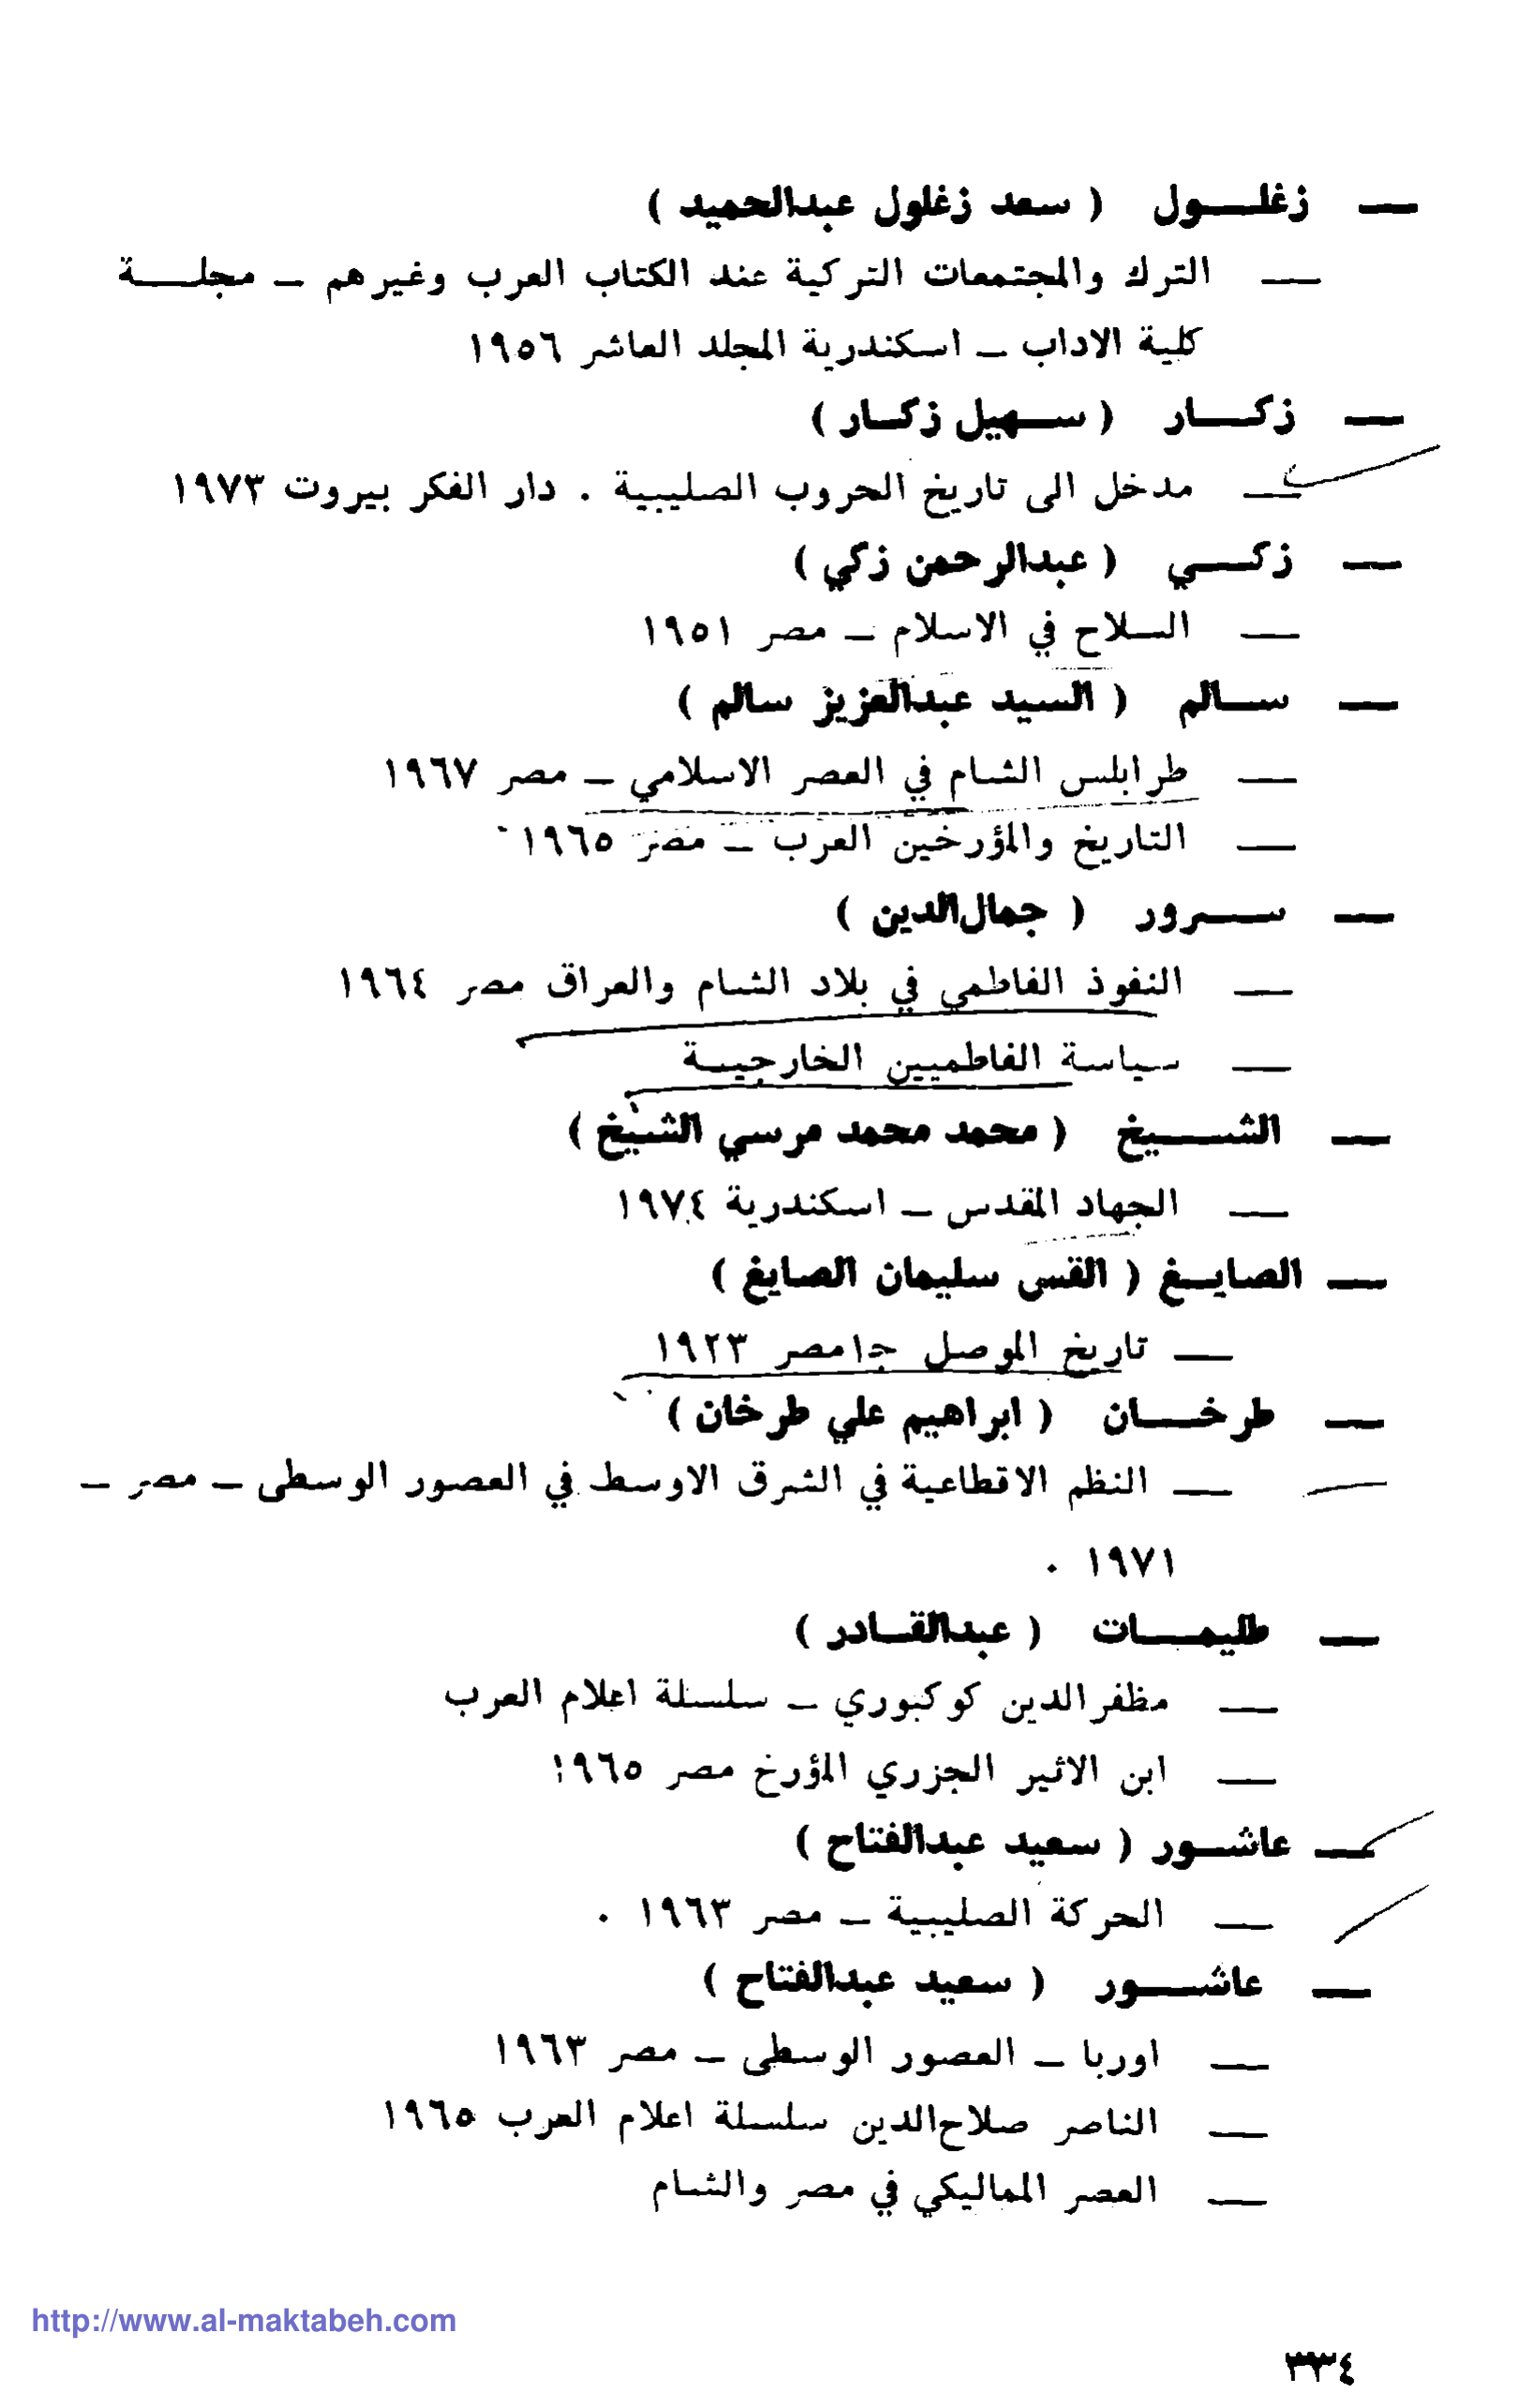 — زغلـــول ( سعد زغلول عبدالحميد )
— الترك والمجتمعات التركية عند الكتاب العرب وغيرهم – مجلـــة
كلية الاداب – اسكندرية المجلد العاشر ١٩٥٦
— زكـــار ( ســهيل زكــار )
— مدخل الى تاريخ الحروب الصليبية . دار الفكر بيروت ١٩٧٣
— زكـــي ( عبدالرحمن زكي )
— السلاح في الاسلام – مصر ١٩٥١
— ســالم ( السيد عبدالعزيز سالم )
— طرابلس الشام في العصر الاسلامي – مصر ١٩٦٧
— التاريخ والمؤرخين العرب – مصر ١٩٦٥
— ســـرور ( جمال الدين )
— النفوذ الفاطمي في بلاد الشام والعراق مصر ١٩٦٤
— سياسة الفاطميين الخارجيـة
— الشـــيخ ( محمد محمد مرسي الشيخ )
— الجهاد المقدس – اسكندرية ١٩٧٤
— الصايـغ ( القس سليمان الصايغ )
— تاريخ الموصل جـ١ مصر ١٩٢٣
— طرخـــان ( ابراهيم علي طرخان )
— النظم الاقطاعية في الشرق الاوسط في العصور الوسطى – مصر –
١٩٧١ .
— طليمـــات ( عبدالقــادر )
— مظفرالدين كوكبوري – سلسلة اعلام العرب
— ابن الاثير الجزري المؤرخ مصر ١٩٦٥
— عاشــور ( سعيد عبدالفتاح )
— الحركة الصليبية – مصر ١٩٦٣ .
— عاشـــور ( سعيد عبدالفتاح )
— اوربا – العصور الوسطى – مصر ١٩٦٣
— الناصر صلاح الدين سلسلة اعلام العرب ١٩٦٥
— العصر المماليكي في مصر والشام
http://www.al-maktabeh.com
٣٣٤